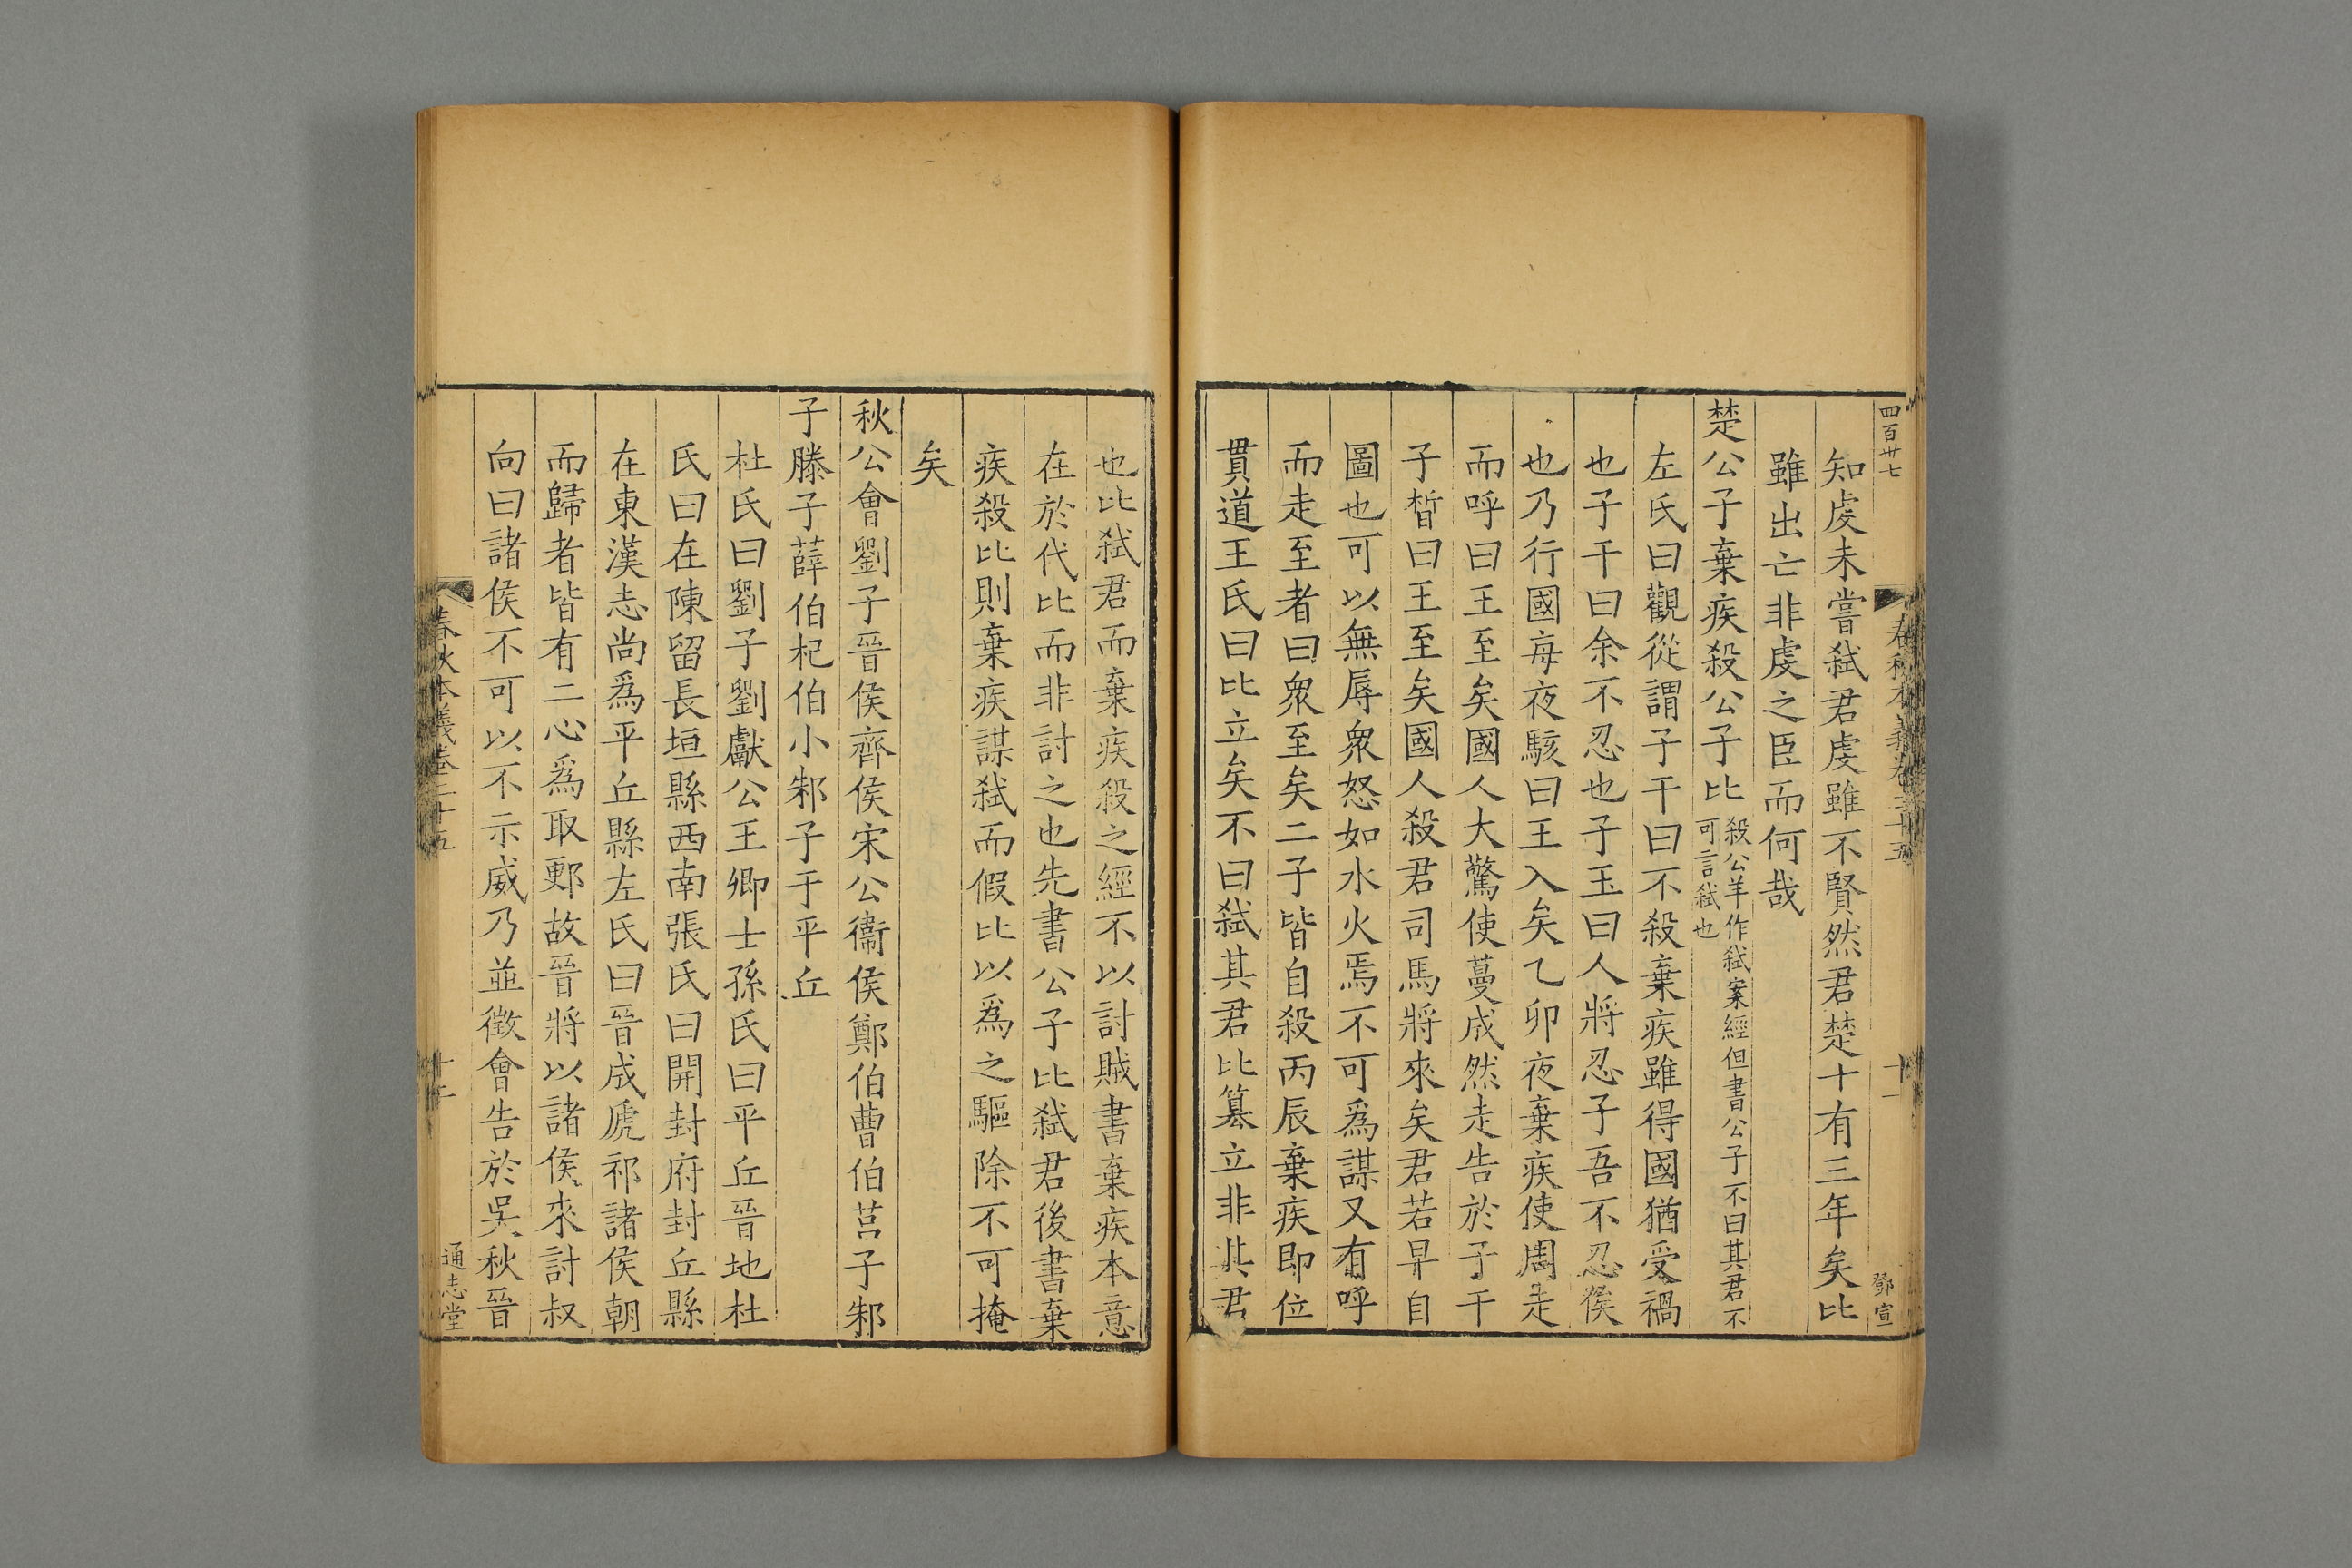 四百卅七
春秋本義卷二十五
十一
鄧宣
知虔未嘗弒君虔雖不賢然君楚十有三年矣比
雖出亡非虔之臣而何哉
楚公子棄疾殺公子比
殺公羊作弒案經但書公子不曰其君不
可言弒也
左氏曰觀從謂子干曰不殺棄疾雖得國猶受禍
也子干曰余不忍也子玉曰人將忍子吾不忍俟
也乃行國每夜駭曰王入矣乙卯夜棄疾使周走
而呼曰王至矣國人大驚使蔓成然走告於子干
子晳曰王至矣國人殺君司馬將來矣君若早自
圖也可以無辱衆怒如水火焉不可爲謀又有呼
而走至者曰衆至矣二子皆自殺丙辰棄疾即位
貫道王氏曰比立矣不曰弒其君比簒立非其君
也比弒君而棄疾殺之經不以討賊書棄疾本意
在於代比而非討之也先書公子比弒君後書棄
疾殺比則棄疾謀弒而假比以爲之驅除不可掩
矣
秋公會劉子晉侯齊侯宋公衞侯鄭伯曹伯莒子邾
子滕子薛伯杞伯小邾子于平丘
杜氏曰劉子劉獻公王卿士孫氏曰平丘晉地杜
氏曰在陳留長垣縣西南張氏曰開封府封丘縣
在東漢志尚爲平丘縣左氏曰晉成虒祁諸侯朝
而歸者皆有二心爲取郠故晉將以諸侯來討叔
向曰諸侯不可以不示威乃並徵會告於吳秋晉
春秋本義卷二十五
十二
通志堂